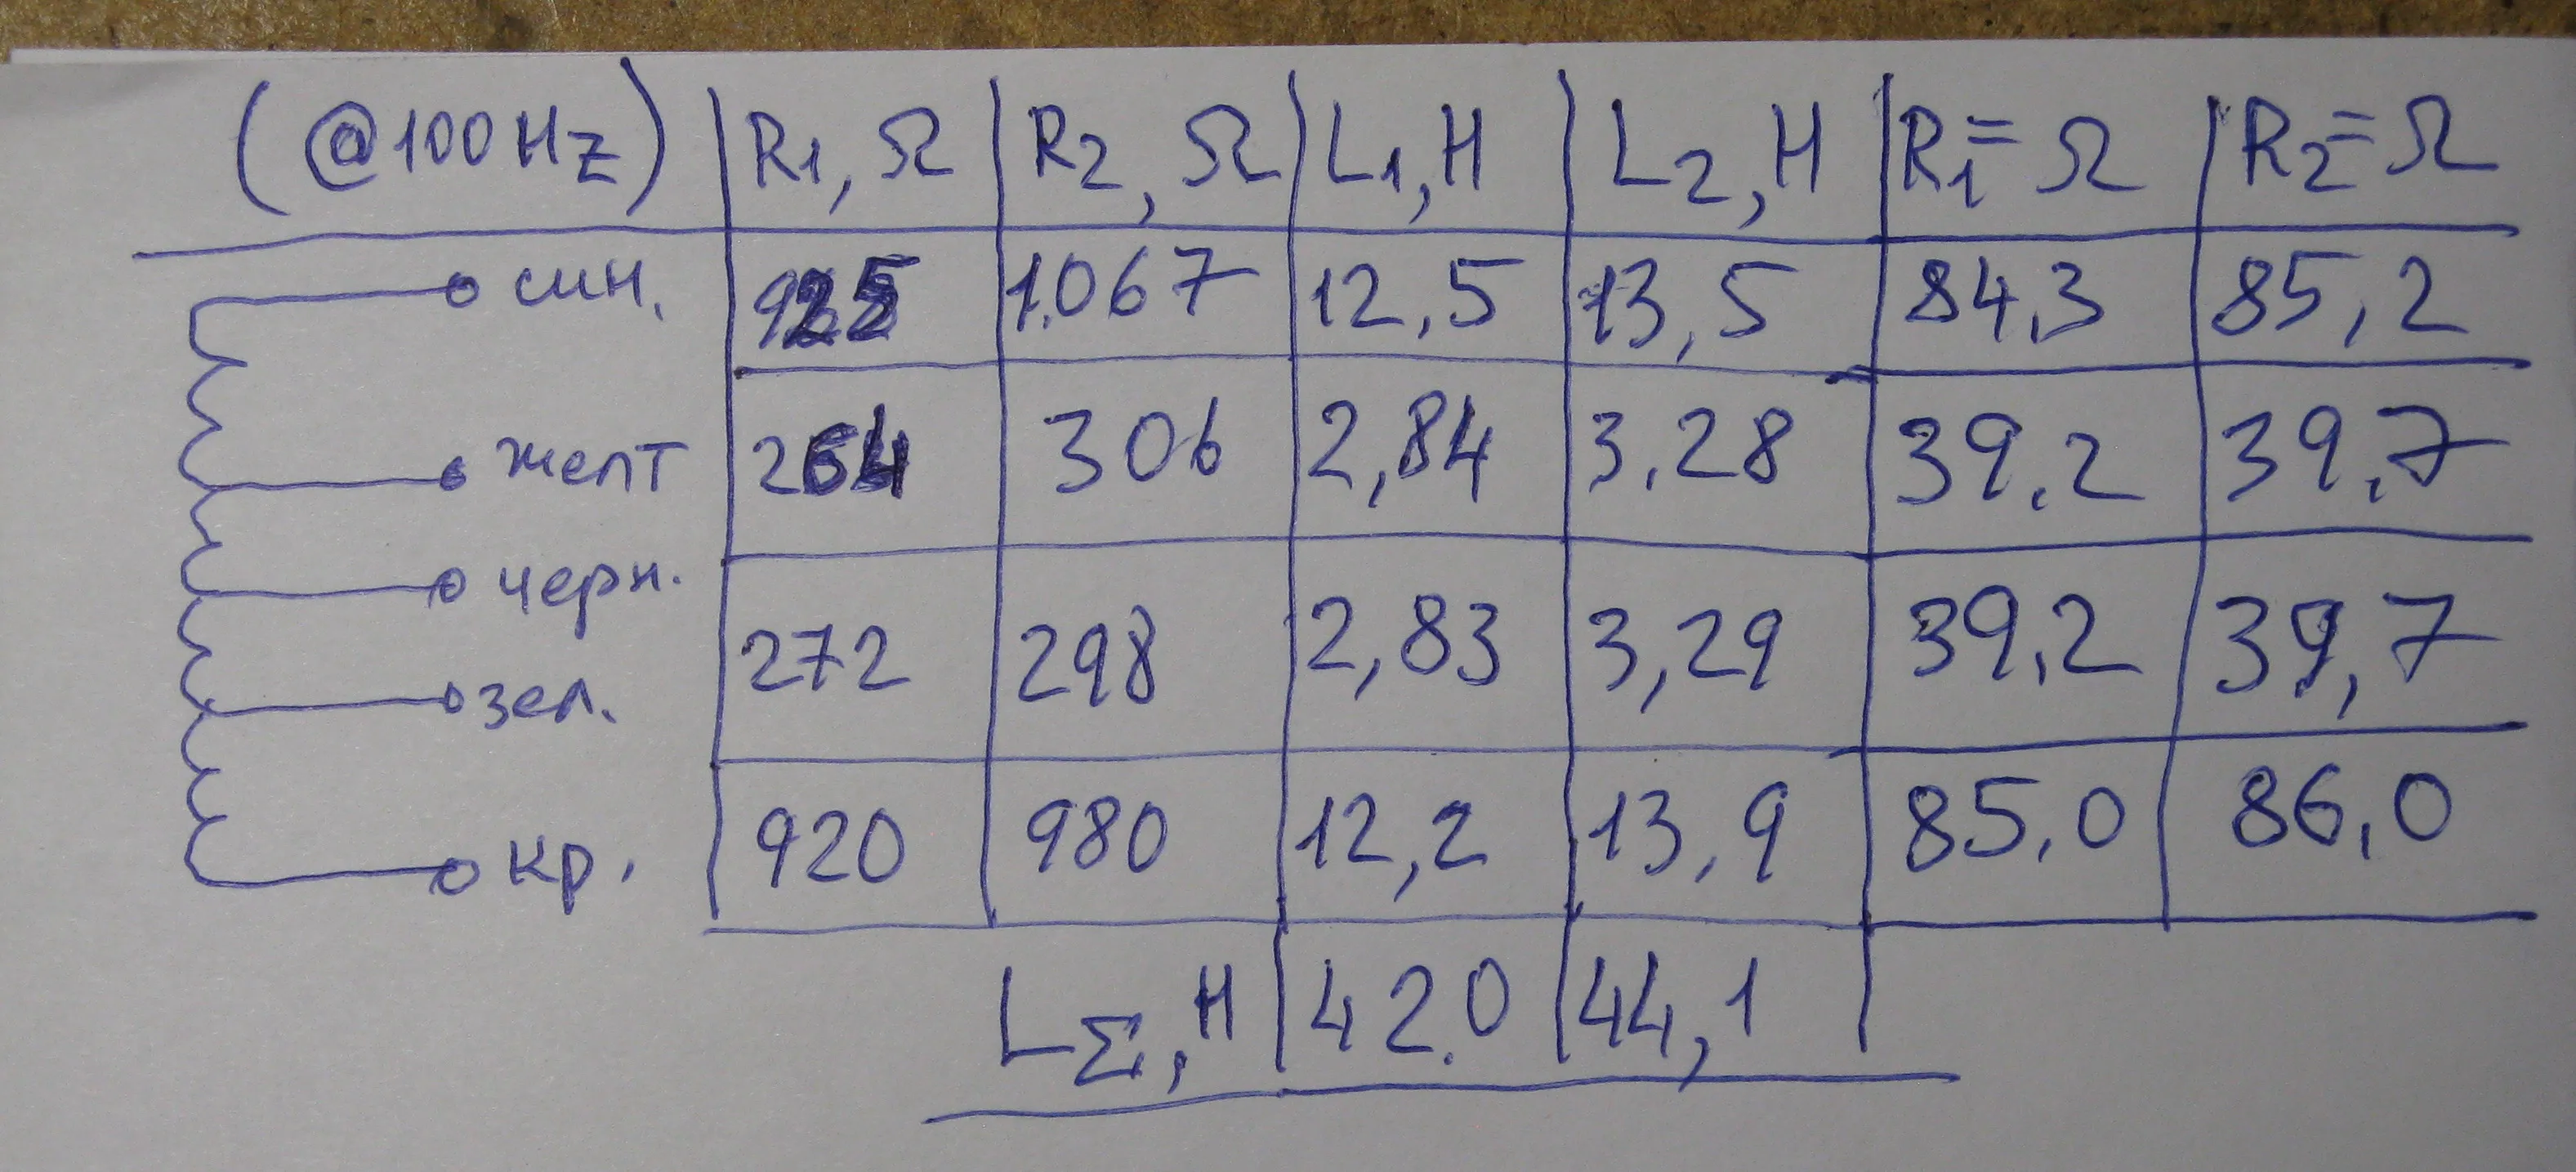 (@100Hz) R1, Ω R2, Ω L1, H L2, H R1= Ω R2= Ω
син. 925 1.067 12,5 13,5 84,3 85,2
желт 264 306 2,84 3,28 39,2 39,7
черн.
272 298 2,83 3,29 39,2 39,7
зел.
кр. 920 980 12,2 13,9 85,0 86,0
LΣ, H 42.0 44,1